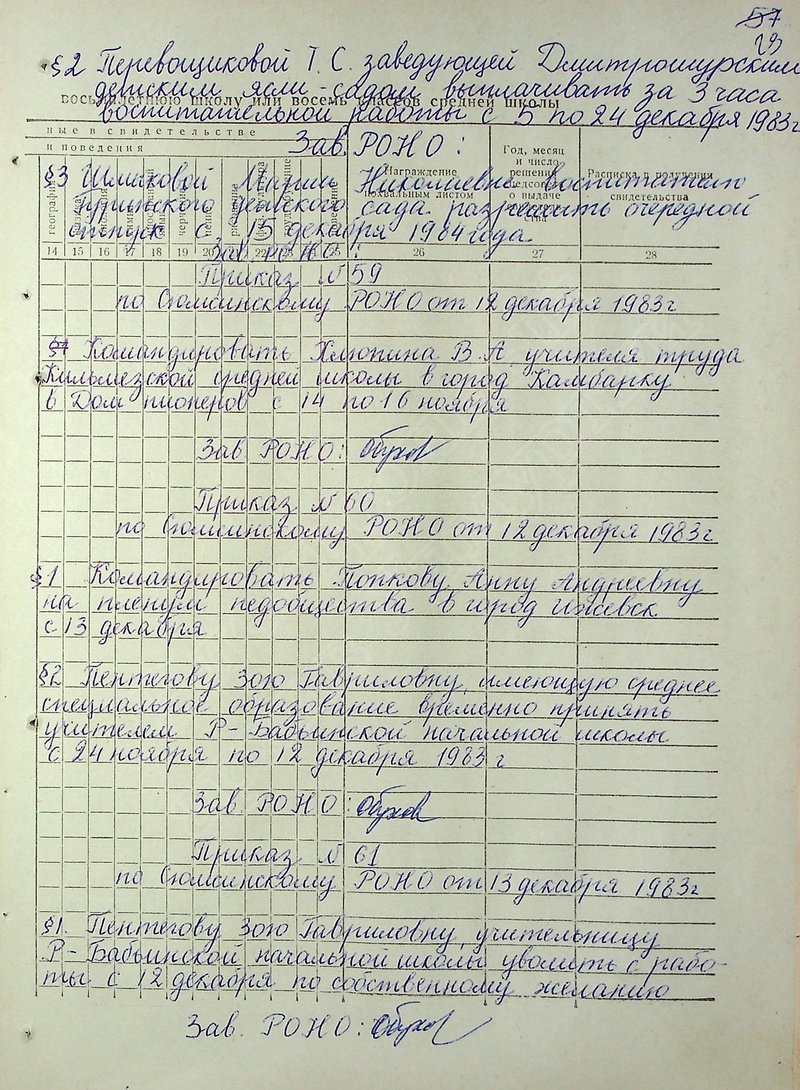 57
29
§2 Перевощиковой Т. С. заведующей Дмитрошурским
детским ясли-садом выплачивать за 3 часа
восьмилетнюю школу или восемь классов средней школы
воспитательной работы с 5 по 24 декабря 1983г
ные в свидетельстве
и поведения
Зав. РОНО:
Год, месяц и число решения педсовета о выдаче
Награждение похвальным листом
Расписка в получении свидетельства
§3 Шмаковой Марии Николаевне воспитателю
детского сада разрешить очередной
отпуск с 15 декабря 1984 года.
Зав. РОНО:
14 15 16 17 18 19 20 21 22 23 24 25 26 27 28
Приказ № 59
по Сюмсинскому РОНО от 12 декабря 1983г
§1 Командировать Хлюпина В. А учителя труда
Кильмезской средней школы в город Камбарку
в Дом пионеров с 14 по 16 ноября
Зав РОНО: Обухов
Приказ № 60
по Сюмсинскому РОНО от 12 декабря 1983г
§1 Командировать Попкову Анну Андреевну
на пленум педобщества в город Ижевск
с 13 декабря
§2 Пентегову Зою Гавриловну, имеющую среднее
специальное образование временно принять
учителем Р-Бабьинской начальной школы
с 24 ноября по 12 декабря 1983 г
Зав. РОНО: Обухов
Приказ № 61
по Сюмсинскому РОНО от 13 декабря 1983г
§1. Пентегову Зою Гавриловну, учительницу
Р-Бабьинской начальной школы уволить с рабо-
ты с 12 декабря по собственному желанию
Зав. РОНО: Обухов